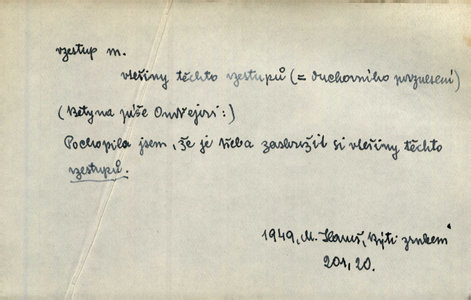 vzestup m.
vteřiny těchto vzestupů (= duchovního povznesení)
(Betyna píše Ondřejovi:)
Pochopila jsem, že je třeba zasloužit si vteřiny těchto
vzestupů.
1949, M. Hanuš, Býti zrnkem
201, 20.